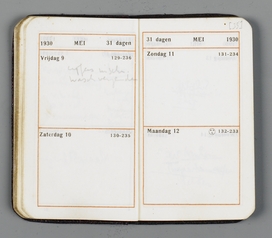 1930 MEI 31 dagen
Vrijdag 9 129-236
Zaterdag 10 130-235
31 dagen MEI 1930
Zondag 11 131-234
Maandag 12 132-233